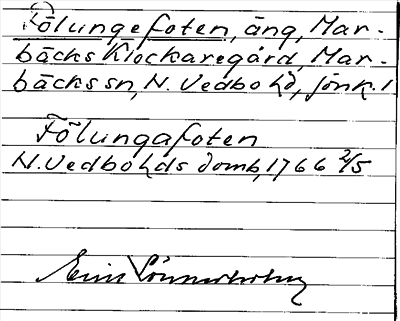 Fölungefoten, äng, Mar-
bäcks Klockaregård, Mar-
bäcks sn, N. Vedbo hd, Jönk. l
Fölungafoten
N. Vedbo hds domb, 1766 2/5